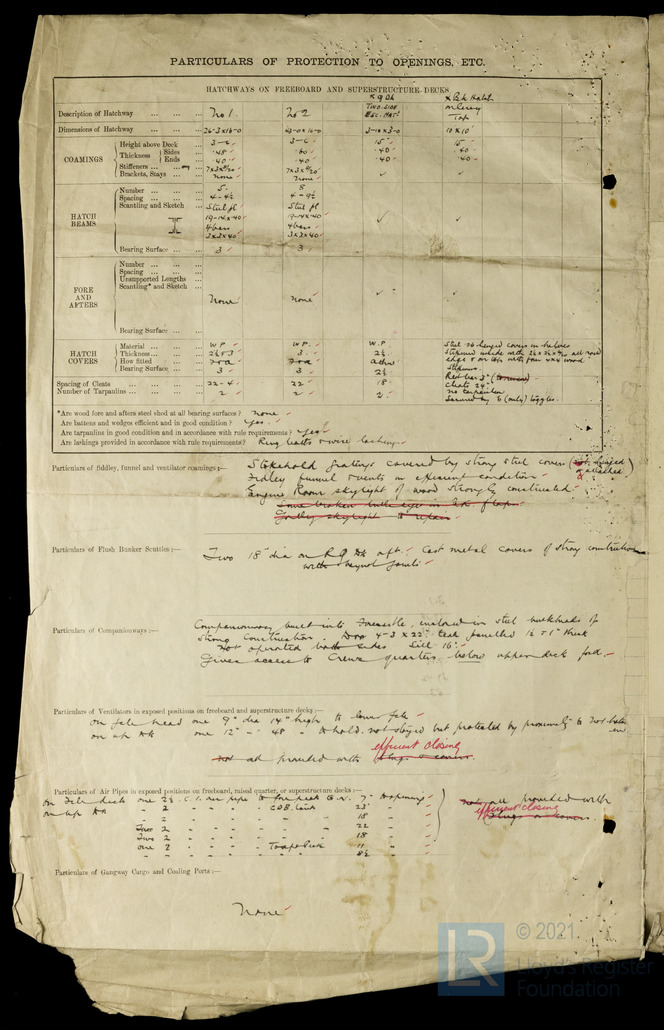 PARTICULARS OF PROTECTION TO OPENINGS, ETC.
HATCHWAYS ON FREEBOARD AND SUPERSTRUCTURE DECKS
Description of Hatchway ... No 1. No 2 R Q Dk TWO SIDE ESC. HAT Hatch on Top
Dimensions of Hatchway 26-3x16-0 43-0x16-0 3-10x3-0 10x10
COAMINGS
Height above Deck 3-6 3-6 15" 15"
Thickness Sides .45 .60 .40 .40
Ends .40 .40 .40 .40
Stiffeners ... 7x3 7x3
Brackets, Stays ... None None
HATCH BEAMS
Number ... 5 8
Spacing ... 4-4½ 4-9½
Scantling and Sketch ... Steel pl Steel pl
19-14x40 19-14x40
4 bars 4 bars
3x3x40 3x3x40
Bearing Surface ... 3 3
FORE AND AFTERS
Number ...
Spacing ...
Unsupported Lengths ...
Scantling* and Sketch ...
None None
Bearing Surface ...
HATCH COVERS
Material ... W.P. W.P. W.P. Steel hinged covers
Thickness ... 2½ & 3 3 2½
How fitted ... F & A F & A athw
Bearing Surface ... 3 3 2½
Spacing of Cleats ... 22-4 22 18 Cleats 24"
Number of Tarpaulins ... 2 2 2 no tarpaulin
Secured by 6 (only) toggles.
*Are wood fore and afters steel shod at all bearing surfaces? none
Are battens and wedges efficient and in good condition? Yes.
Are tarpaulins in good condition and in accordance with rule requirements? Yes
Are lashings provided in accordance with rule requirements? Ring bolts & wire lashings
Particulars of fiddley, funnel and ventilator coamings:— Stokehold gratings covered by strong steel covers (not hinged or attached)
Fidley funnel & vents in efficient condition
Engine Room skylight of wood strongly constructed
Some broken bulls eyes in
skylight repair
Particulars of Flush Bunker Scuttles:— Two 18" dia on R Q Dk aft. Cast metal covers of strong construction
with bayonet joints
Particulars of Companionways:— Companionway built into Forecastle, enclosed in steel bulkheads of
strong construction. Door 4-3 x 22" teak panelled 1½ & 1" thick
Not operated both sides Sill 16"
Gives access to Crews quarters below upper deck ford.
Particulars of Ventilators in exposed positions on freeboard and superstructure decks:—
On fcle head one 9" dia 14" high to lower fcle
on up Dk one 12" " 48 " to hold. not stayed but protected by proximity to No1 hatch end
efficient closing
not all provided with plugs & covers.
Particulars of Air Pipes in exposed positions on freeboard, raised quarter, or superstructure decks:—
On Fcle deck one 2½ C.I. air pipe to forepeak G.N. 7" to opening
on up Dk " 2 " " " C.D.B. tank 23"
" 2 " " " 18
Two 2 " " " 22
Two 2 " " " 18
one 2 " " " 11
8½
not all provided with
efficient closing
Plugs or covers.
Particulars of Gangway Cargo and Coaling Ports:—
None
LR
© 2021
Lloyd's Register
Foundation